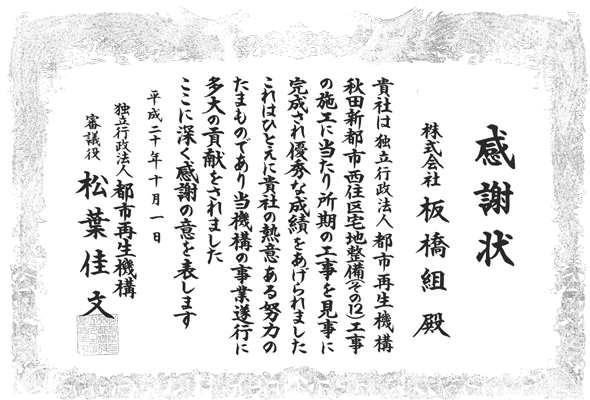 感謝状
株式会社 板橋組 殿
貴社は独立行政法人都市再生機構
秋田新都市西住区宅地整備(その12)工事
の施工に当たり所期の工事を見事に
完成され優秀な成績をあげられました
これはひとえに貴社の熱意ある努力の
たまものであり当機構の事業遂行に
多大の貢献をされました
ここに深く感謝の意を表します
平成二十年十月一日
独立行政法人都市再生機構
審議役 松葉佳文